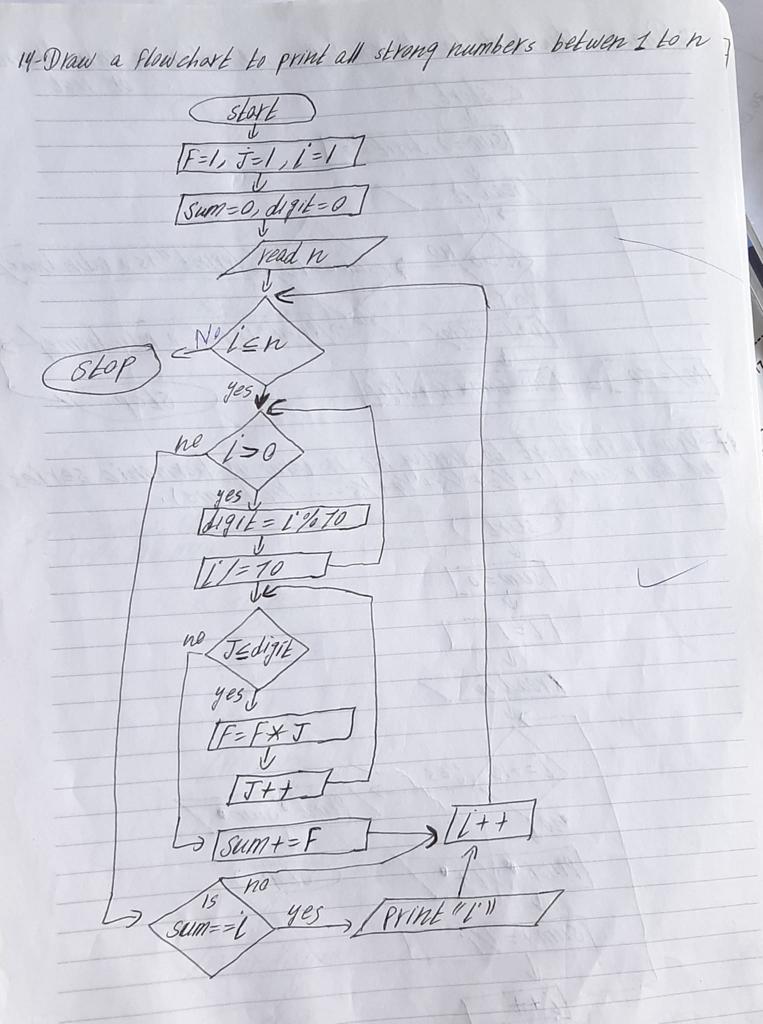 14-Draw a flowchart to print all strong numbers betwen 1 to n
start
F=1, j=1, i=1
sum=0, digit=0
read n
No i≤n
stop
yes
no i>0
yes
digit=i%10
i/=10
no J≤digit
yes
F=F*J
J++
i++
sum+=F
no
is
sum==i yes print "i"